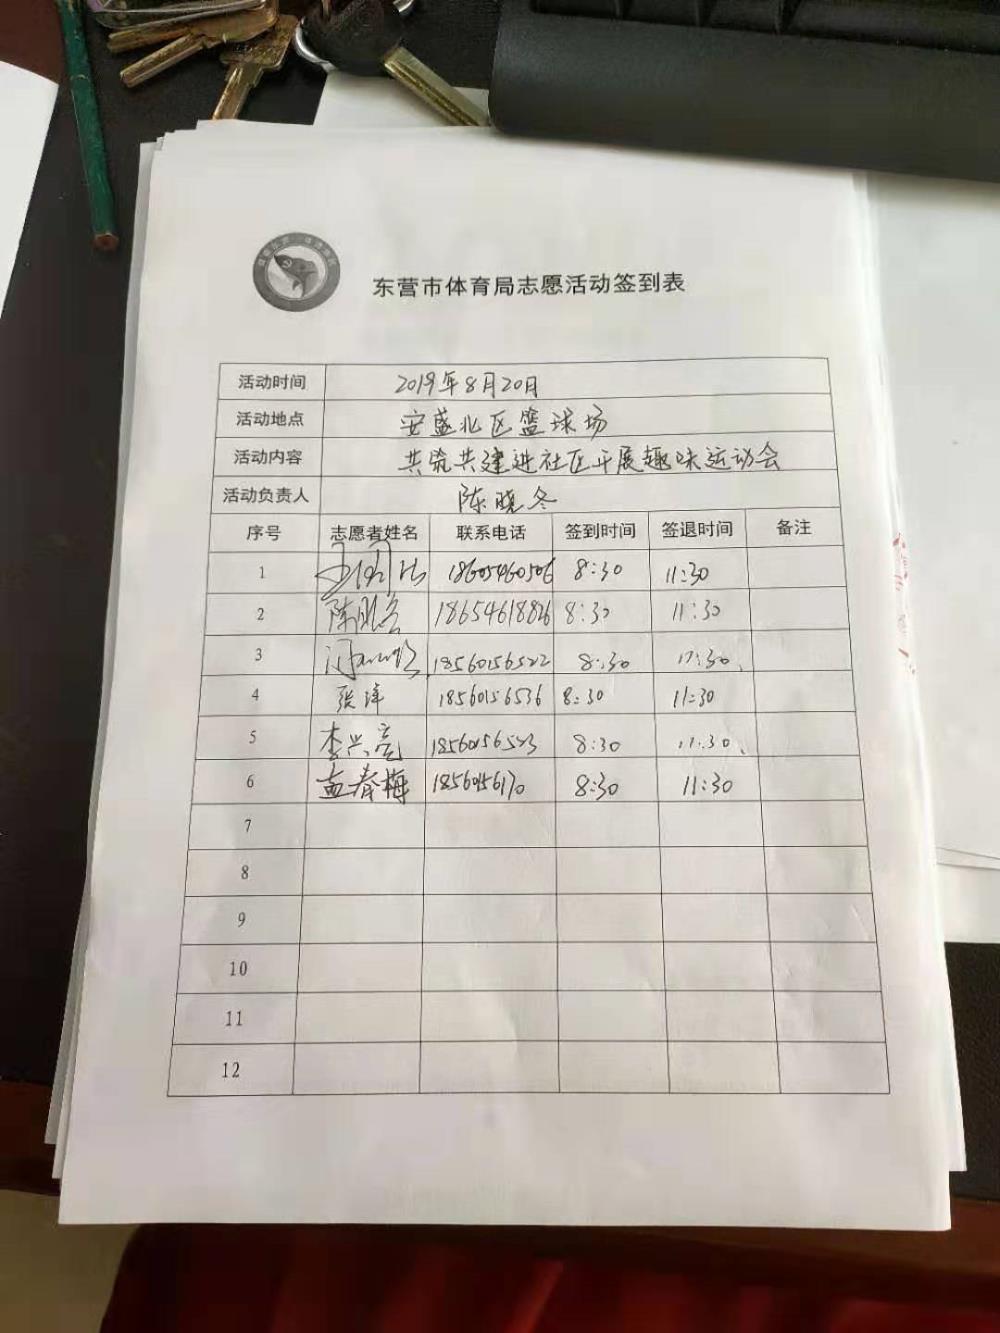 东营市体育局志愿活动签到表
活动时间 2019年8月20日
活动地点 安盛北区篮球场
活动内容 共筑共建进社区开展趣味运动会
活动负责人 陈晓冬
序号 志愿者姓名 联系电话 签到时间 签退时间 备注
1 18605460506 8:30 11:30
2 陈晓冬 18654618826 8:30 11:30
3 18560156522 8:30 11:30
4 张洋 18560156536 8:30 11:30
5 李兴亮 18560156523 8:30 11:30
6 孟春梅 8:30 11:30
7
8
9
10
11
12